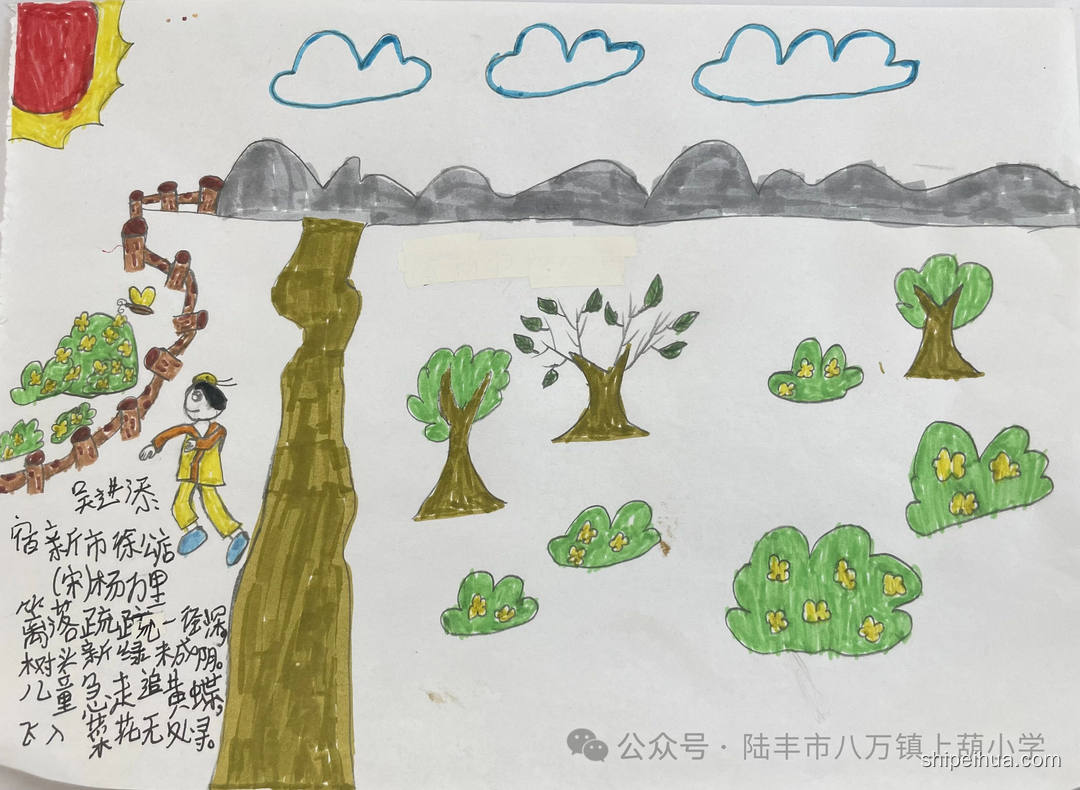 吴进添
宿新市徐公店
(宋)杨万里
篱落疏疏一径深,
树头新绿未成阴。
儿童急走追黄蝶,
飞入菜花无处寻。
公众号·陆丰市八万镇上葫小学
shipeihua.com